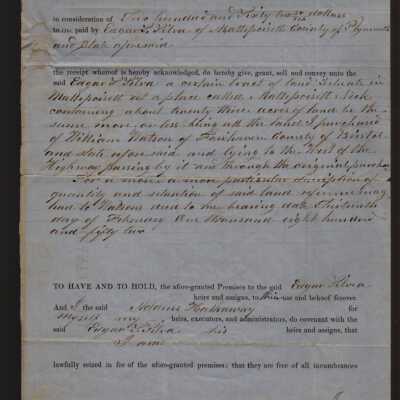 in consideration of Two hundred and Sixty two 50/100 dollars
to me paid by Edgar L Silva of Mattapoisett County of Plymouth
and State aforesaid
the receipt whereof is hereby acknowledged, do hereby give, grant, sell and convey unto the
said Edgar L Silva a certain tract of land situate in
Mattapoisett at a place called Mattapoisett Neck
containing about twenty three acres of land be the
same more or less being all the land I purchased
of William Watson of Fairhaven County of Bristol
and State aforesaid and lying to the West of the
Highway passing by it and through the original purchase
For a more particular description of
quantity and situation of said land reference may
be had to Watsons deed to me bearing date thirteenth
day of February One thousand eight hundred
and fifty two
TO HAVE AND TO HOLD, the afore-granted Premises to the said Edgar Silva
heirs and assigns, to his use and behoof forever.
And I the said Adams Hathaway for
Myself my heirs, executors, and administrators, do covenant with the
said Edgar L Silva his heirs and assigns, that
I am
lawfully seized in fee of the afore-granted premises: that they are free of all incumbrances